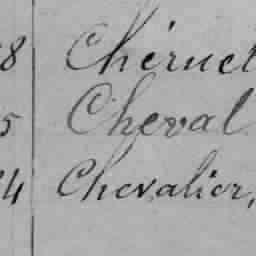 8 Chéruel
5 Cheval
4 Chevalier,